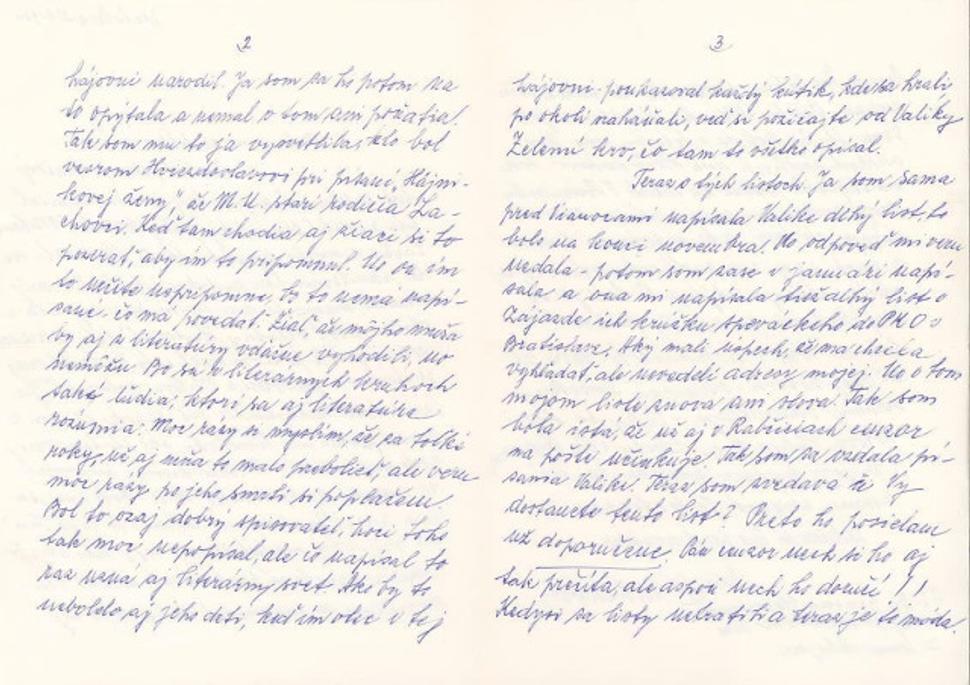 2
hájovni narodil. Ja som sa ho potom na
to opýtala a nemal o tom ani poňatia!
Tak som mu to ja vysvetlila, kto bol
vzorom Hviezdoslavovi pri písaní „Hájni-
kovej ženy", že M. U. starí rodičia La-
chovci. Keď tam chodia aj žiaci si to
pozerať, aby im to pripomnul. No on im
to určite nepripomne, bo to nemá napí-
sané, čo má povedať. Žiaľ, že môjho muža
by aj z literatúry vďačne vyhodili, no
nemôžu. Bo sú v literárnych kruhoch
takí ľudia, ktorí sa aj literatúre
rozumia. Moc razy si myslím, že za toľké
roky, už aj mňa to malo prebolieť, ale veru
moc razy po jeho smrti si poplačem.
Bol to ozaj dobrý spisovateľ, hoci toho
tak moc nepopísal, ale čo napísal to
raz uzná aj literárny svet. Ako by to
nebolelo aj jeho deti, keď im otec v tej
3
hájovni poukazoval každý kútik, kde sa hrali
po okolí naháňali, veď si požičajte od Valiky
Zelenú krv, čo tam to všetko opísal.
Teraz o tých listoch. Ja som sama
pred Vianocami napísala Valike dlhý list, to
bolo na konci novembra. No odpoveď mi veru
nedala - potom som zase v januári napí-
sala a ona mi napísala tiež dlhý list o
Zájazde ich krúžku speváckeho do PKO v
Bratislave. Aký mali úspech, že ma chcela
vyhľadať, ale nevedeli adresy mojej. No o tom
mojom liste znova ani slova. Tak som
bola istá, že už aj v Rabčiciach cenzor
na pošte účinkuje. Tak som sa vzdala pí-
sania Valike. Teraz som zvedavá či Vy
dostanete tento list? Preto ho posielam
už doporučene. Pán cenzor nech si ho aj
tak prečíta, ale aspoň nech ho doručí !!
Kedysi sa listy nekrátili a teraz je to móda.